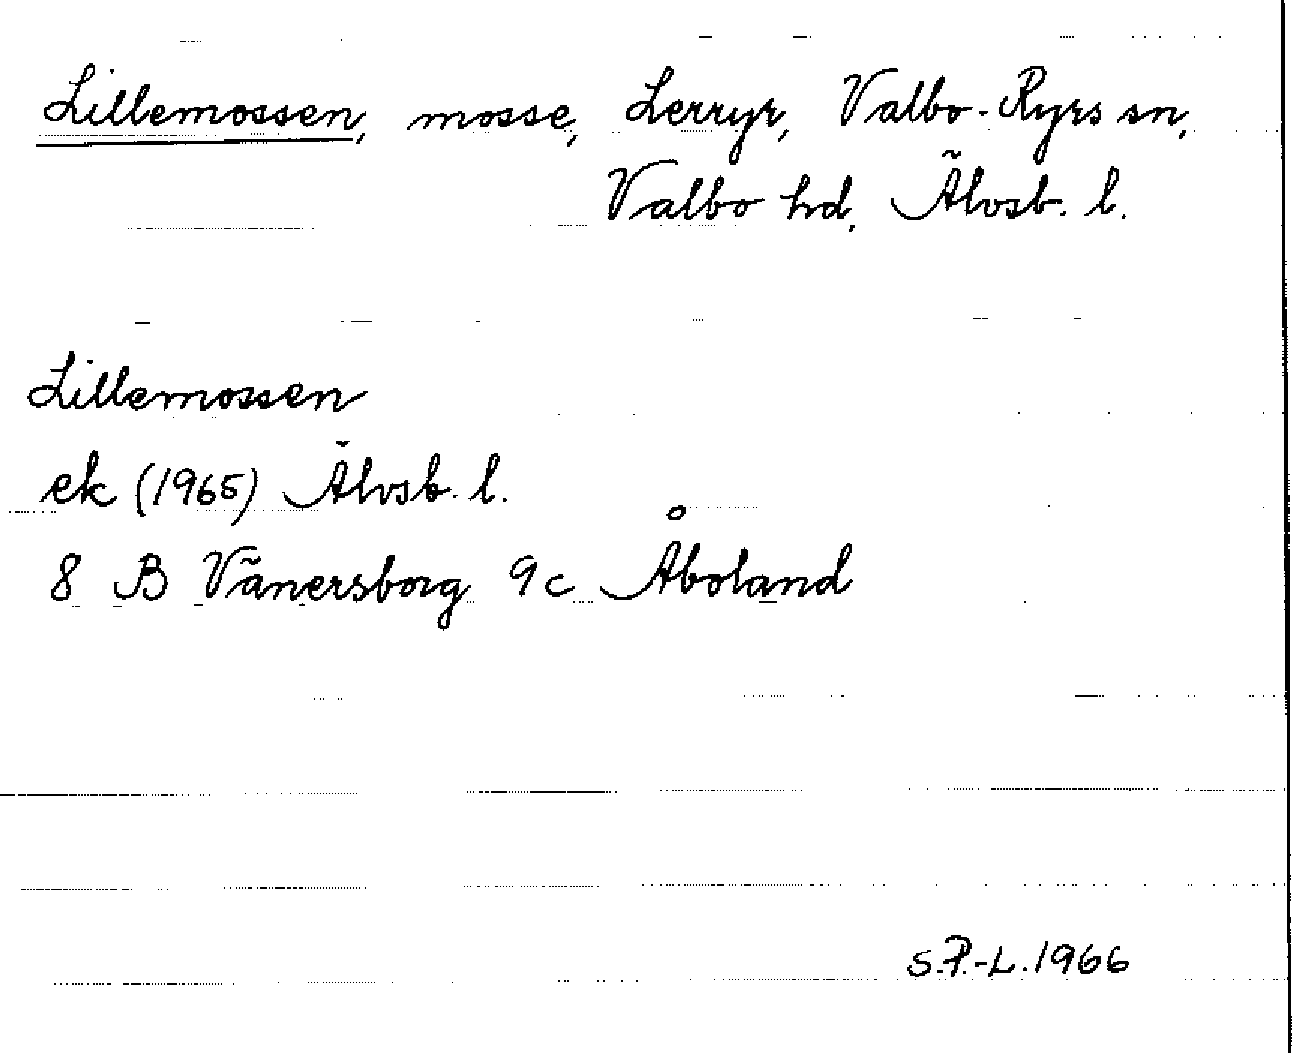 Lillemossen, mosse, Lerryr, Valbo-Ryrs sn,
Valbo hd, Älvsb. l.
Lillemossen
ek (1965) Älvsb. l.
8 B Vänersborg 9c Åboland
S.P.-L. 1966